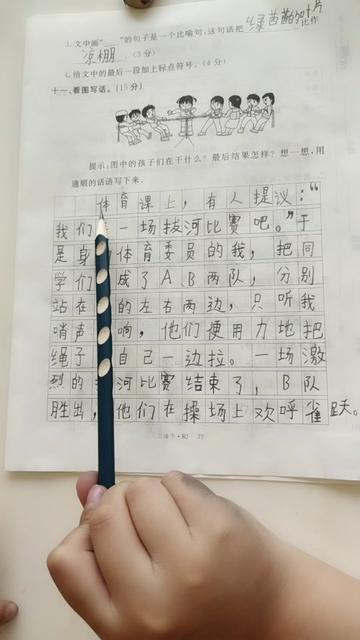 3. 文中画“____”的句子是一个比喻句,这句话把 绿茵茵的叶片 比作
凉棚 。(3分)
4. 给文中的最后一段加上标点符号。(4分)
十一、看图写话。(15分)
提示:图中的孩子们在干什么?最后结果怎样?想一想,用
通顺的话语写下来。
体育课上,有人提议:“
我们 一场拔河比赛吧。”于
是身 体育委员的我,把同
学们 成了A、B两队,分别
站在 的左右两边,只听我
哨声 响,他们便用力地把
绳子 自己一边拉。一场激
烈的 河比赛结束了,B队
胜出, 他们在操场上欢呼雀跃。